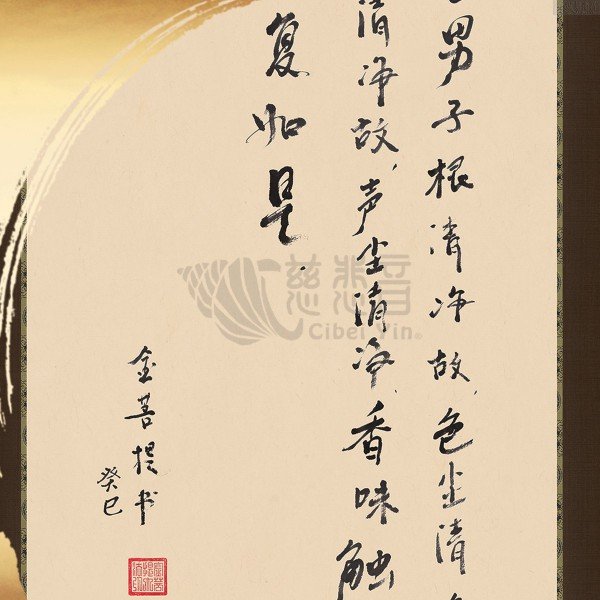 男子根清净故，色尘清
清净故，声尘清净，香味触
复如是。
金菩提书
癸巳
慈悲音
Cibei Yin®